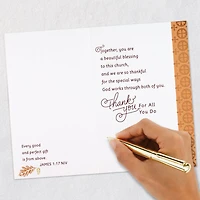 Together, you are
a beautiful blessing
to this church,
and we are so thankful
for the special ways
God works through both of you.
Thank you For All
You Do
Every good
and perfect gift
is from above.
JAMES 1:17 NIV